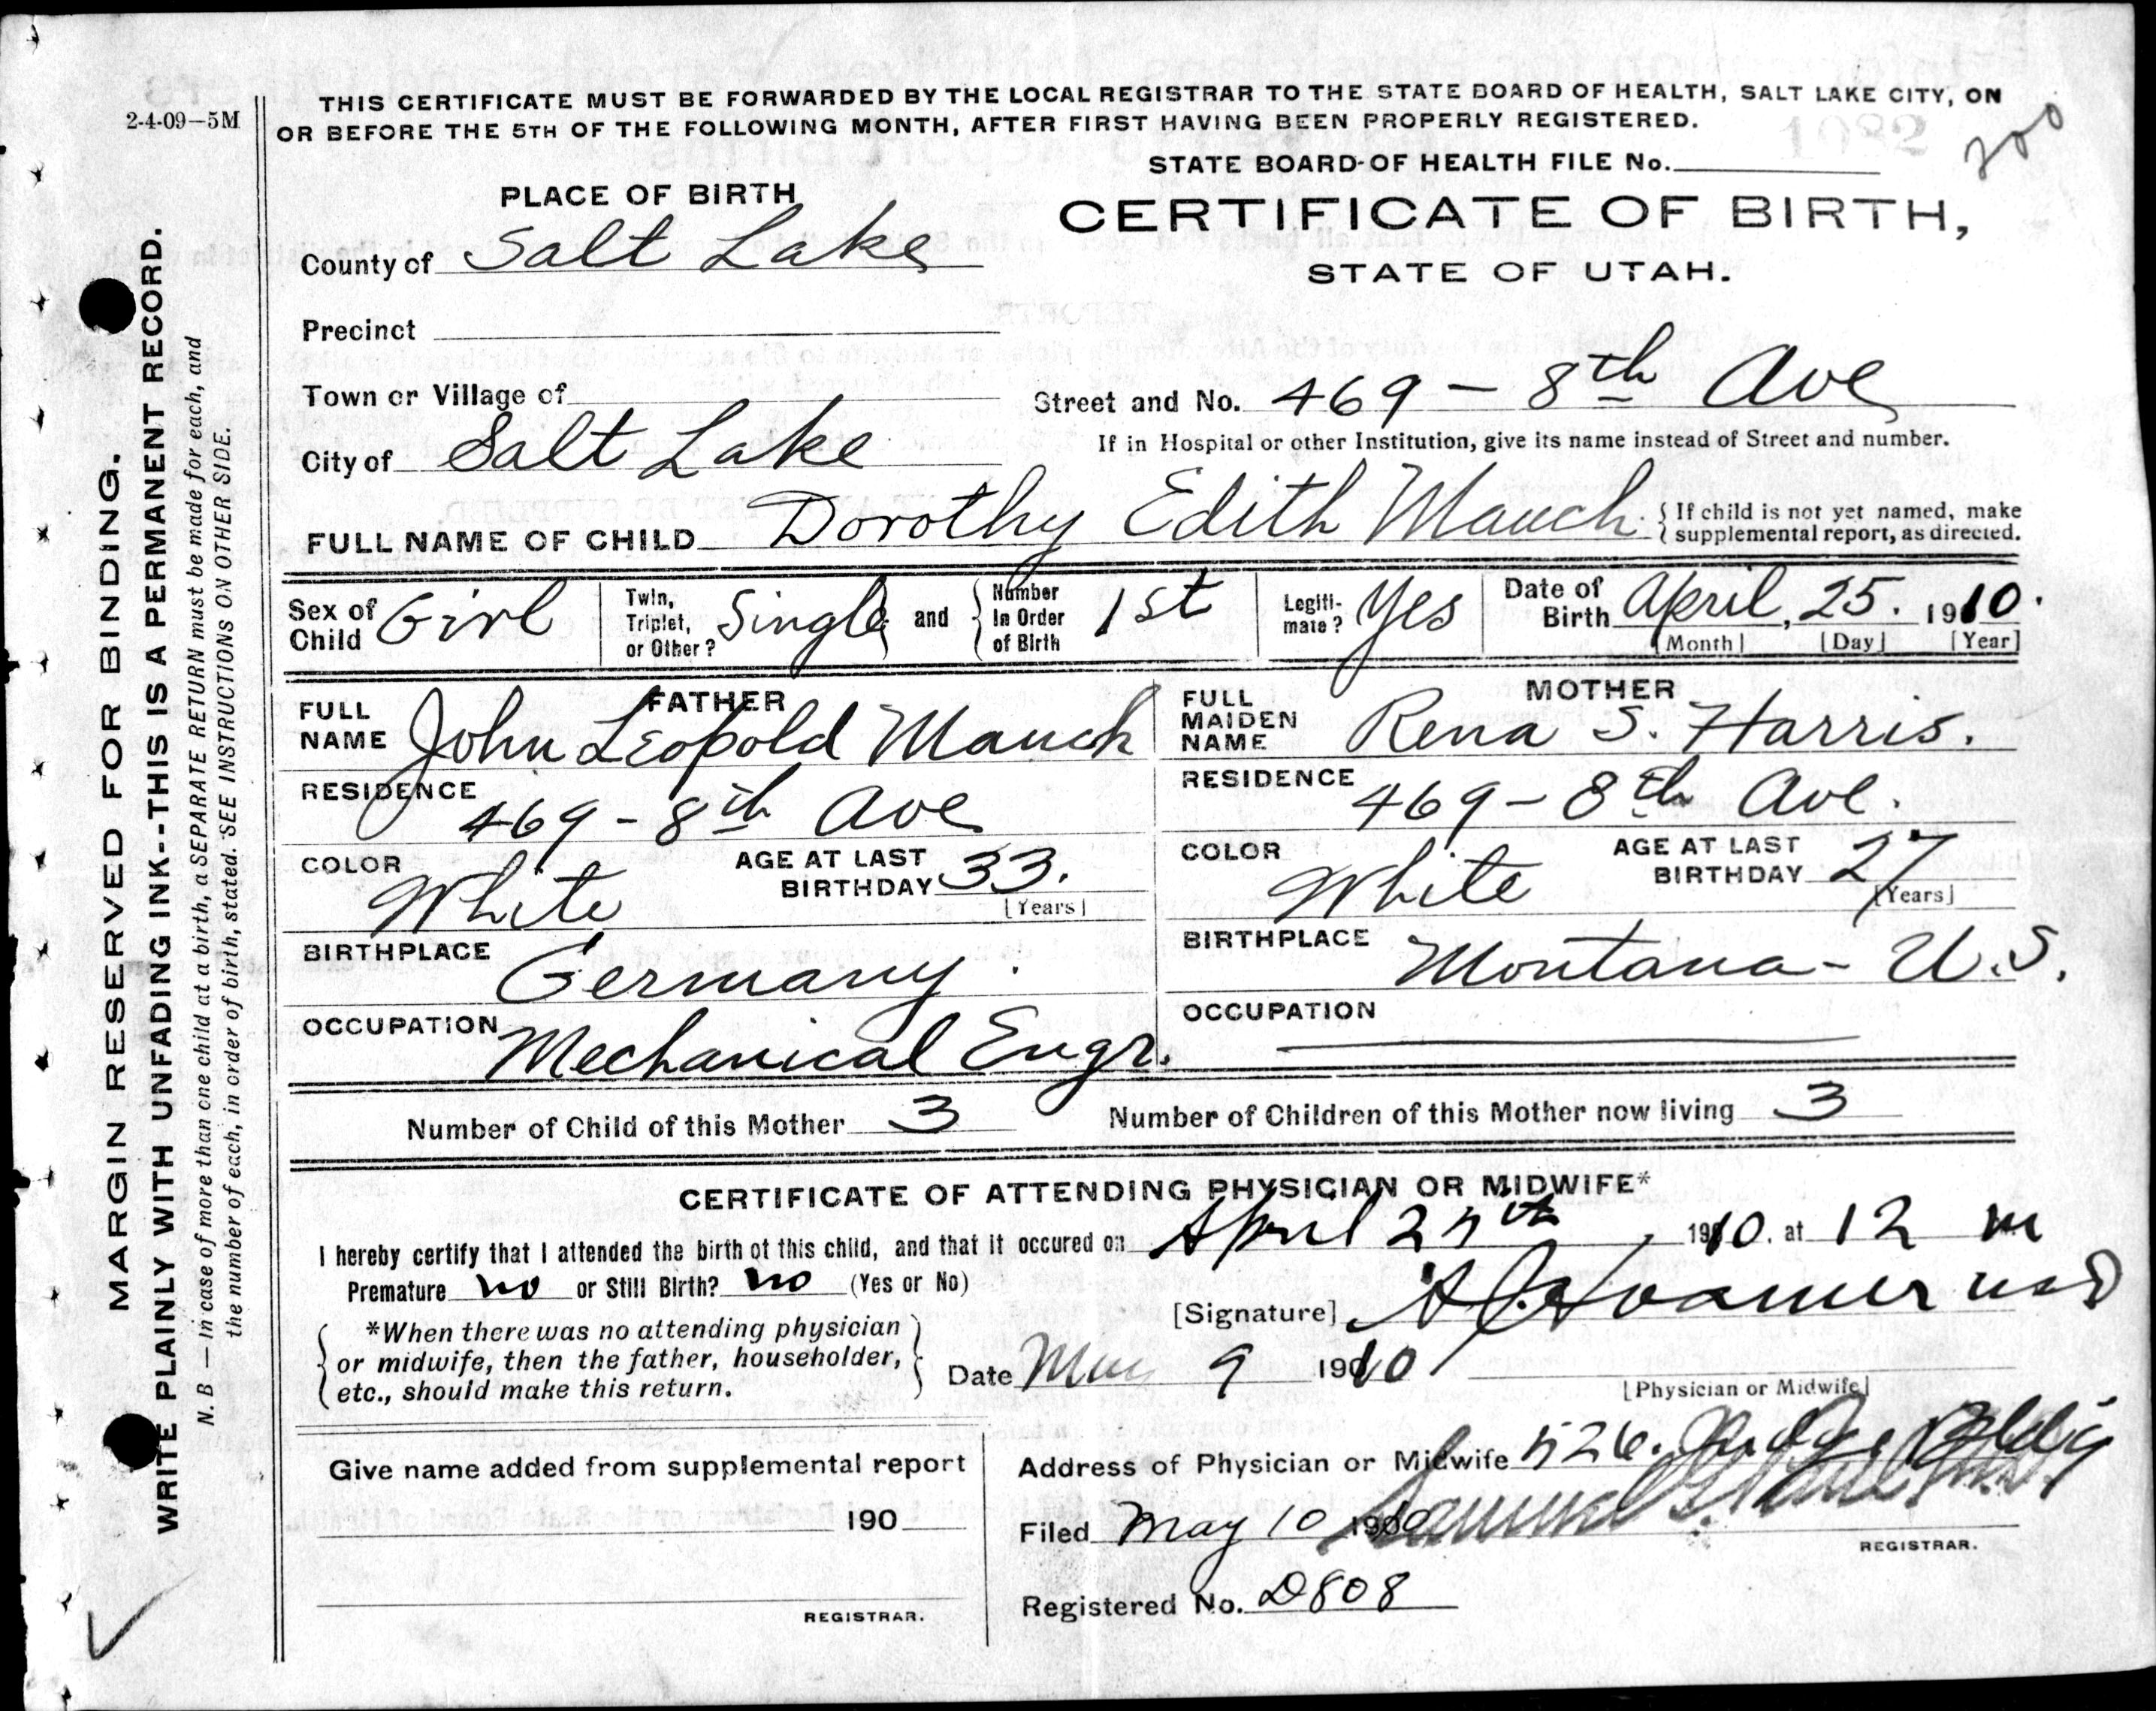 2-4-09—5M
THIS CERTIFICATE MUST BE FORWARDED BY THE LOCAL REGISTRAR TO THE STATE BOARD OF HEALTH, SALT LAKE CITY, ON
OR BEFORE THE 5TH OF THE FOLLOWING MONTH, AFTER FIRST HAVING BEEN PROPERLY REGISTERED.
1082
200
STATE BOARD OF HEALTH FILE No.
PLACE OF BIRTH
CERTIFICATE OF BIRTH,
STATE OF UTAH.
County of Salt Lake
Precinct
Town or Village of
Street and No. 469 - 8th Ave
If in Hospital or other Institution, give its name instead of Street and number.
City of Salt Lake
FULL NAME OF CHILD Dorothy Edith Mauch. { If child is not yet named, make
supplemental report, as directed.
Sex of Child Girl Twin, Triplet, or Other? Single and { Number In Order of Birth 1st Legiti-mate? Yes Date of Birth April, 25. 1910.
[Month] [Day] [Year]
FATHER
FULL NAME John Leopold Mauch
RESIDENCE 469 - 8th Ave
COLOR White AGE AT LAST BIRTHDAY 33.
[Years]
BIRTHPLACE Germany.
OCCUPATION Mechanical Engr.
MOTHER
FULL MAIDEN NAME Rena S. Harris.
RESIDENCE 469 - 8th Ave.
COLOR White AGE AT LAST BIRTHDAY 27
[Years]
BIRTHPLACE Montana - U.S.
OCCUPATION
Number of Child of this Mother 3 Number of Children of this Mother now living 3
CERTIFICATE OF ATTENDING PHYSICIAN OR MIDWIFE*
I hereby certify that I attended the birth of this child, and that it occured on April 25th, 1910. at 12 m
Premature no or Still Birth? no (Yes or No)
[Signature]
*When there was no attending physician
or midwife, then the father, householder,
etc., should make this return.
Date May 9 1910
[Physician or Midwife]
Give name added from supplemental report
190
REGISTRAR.
Address of Physician or Midwife 526. Judge Bldg
Filed May 10 1910
REGISTRAR.
Registered No. D808
MARGIN RESERVED FOR BINDING.
WRITE PLAINLY WITH UNFADING INK--THIS IS A PERMANENT RECORD.
N. B — In case of more than one child at a birth, a SEPARATE RETURN must be made for each, and
the number of each, in order of birth, stated. SEE INSTRUCTIONS ON OTHER SIDE.